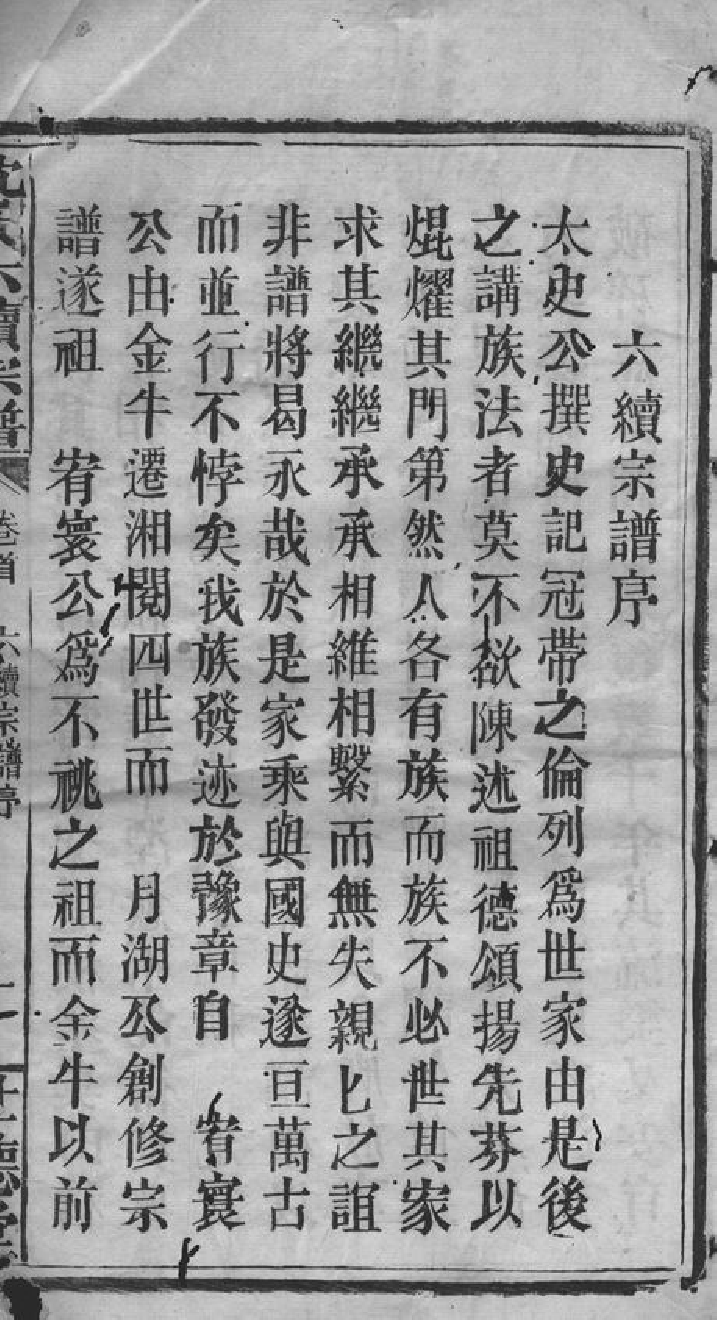 六續宗譜序
太史公撰史記冠帶之倫列爲世家由是後
之講族法者莫不欲陳述祖德頌揚先芬以
焜燿其門第然人各有族而族不必世其家
求其繼繼繩承承相維相繫而無失親匕之誼
非譜將曷永哉於是家乘與國史遂亘萬古
而並行不悖矣我族發迹於豫章自　宥寰
公由金牛遷湘閱四世而　月湖公創修宗
譜遂祖　宥寰公爲不祧之祖而金牛以前
六續宗譜
卷首　六續宗譜序